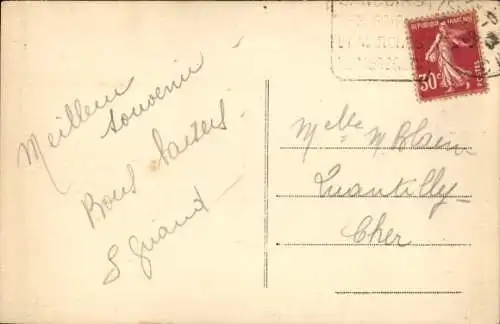 Meilleur
souvenir
Bons baisers
S. Guiard
RÉPUBLIQUE FRANÇAISE
30c
Melle M. Blain
Quantilly
Cher